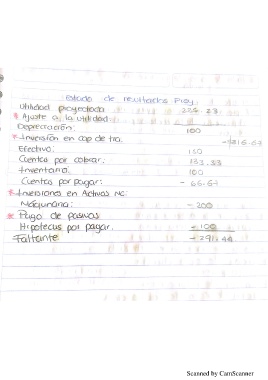 Estado de resultados Proy.
Utilidad proyectada 225.23
* Ajuste a la utilidad:
Depreciación: 100
* Inversión en cap de tra.
Efectivo: 150
Cuentas por cobrar: 133.33
Inventario: 100
Cuentas por pagar: - 66.67
* Inversiones en Activos NC:
Máquinaria: - 200
* Pago de pasivos
Hipotecas por pagar. - 100
Faltante
Scanned by CamScanner